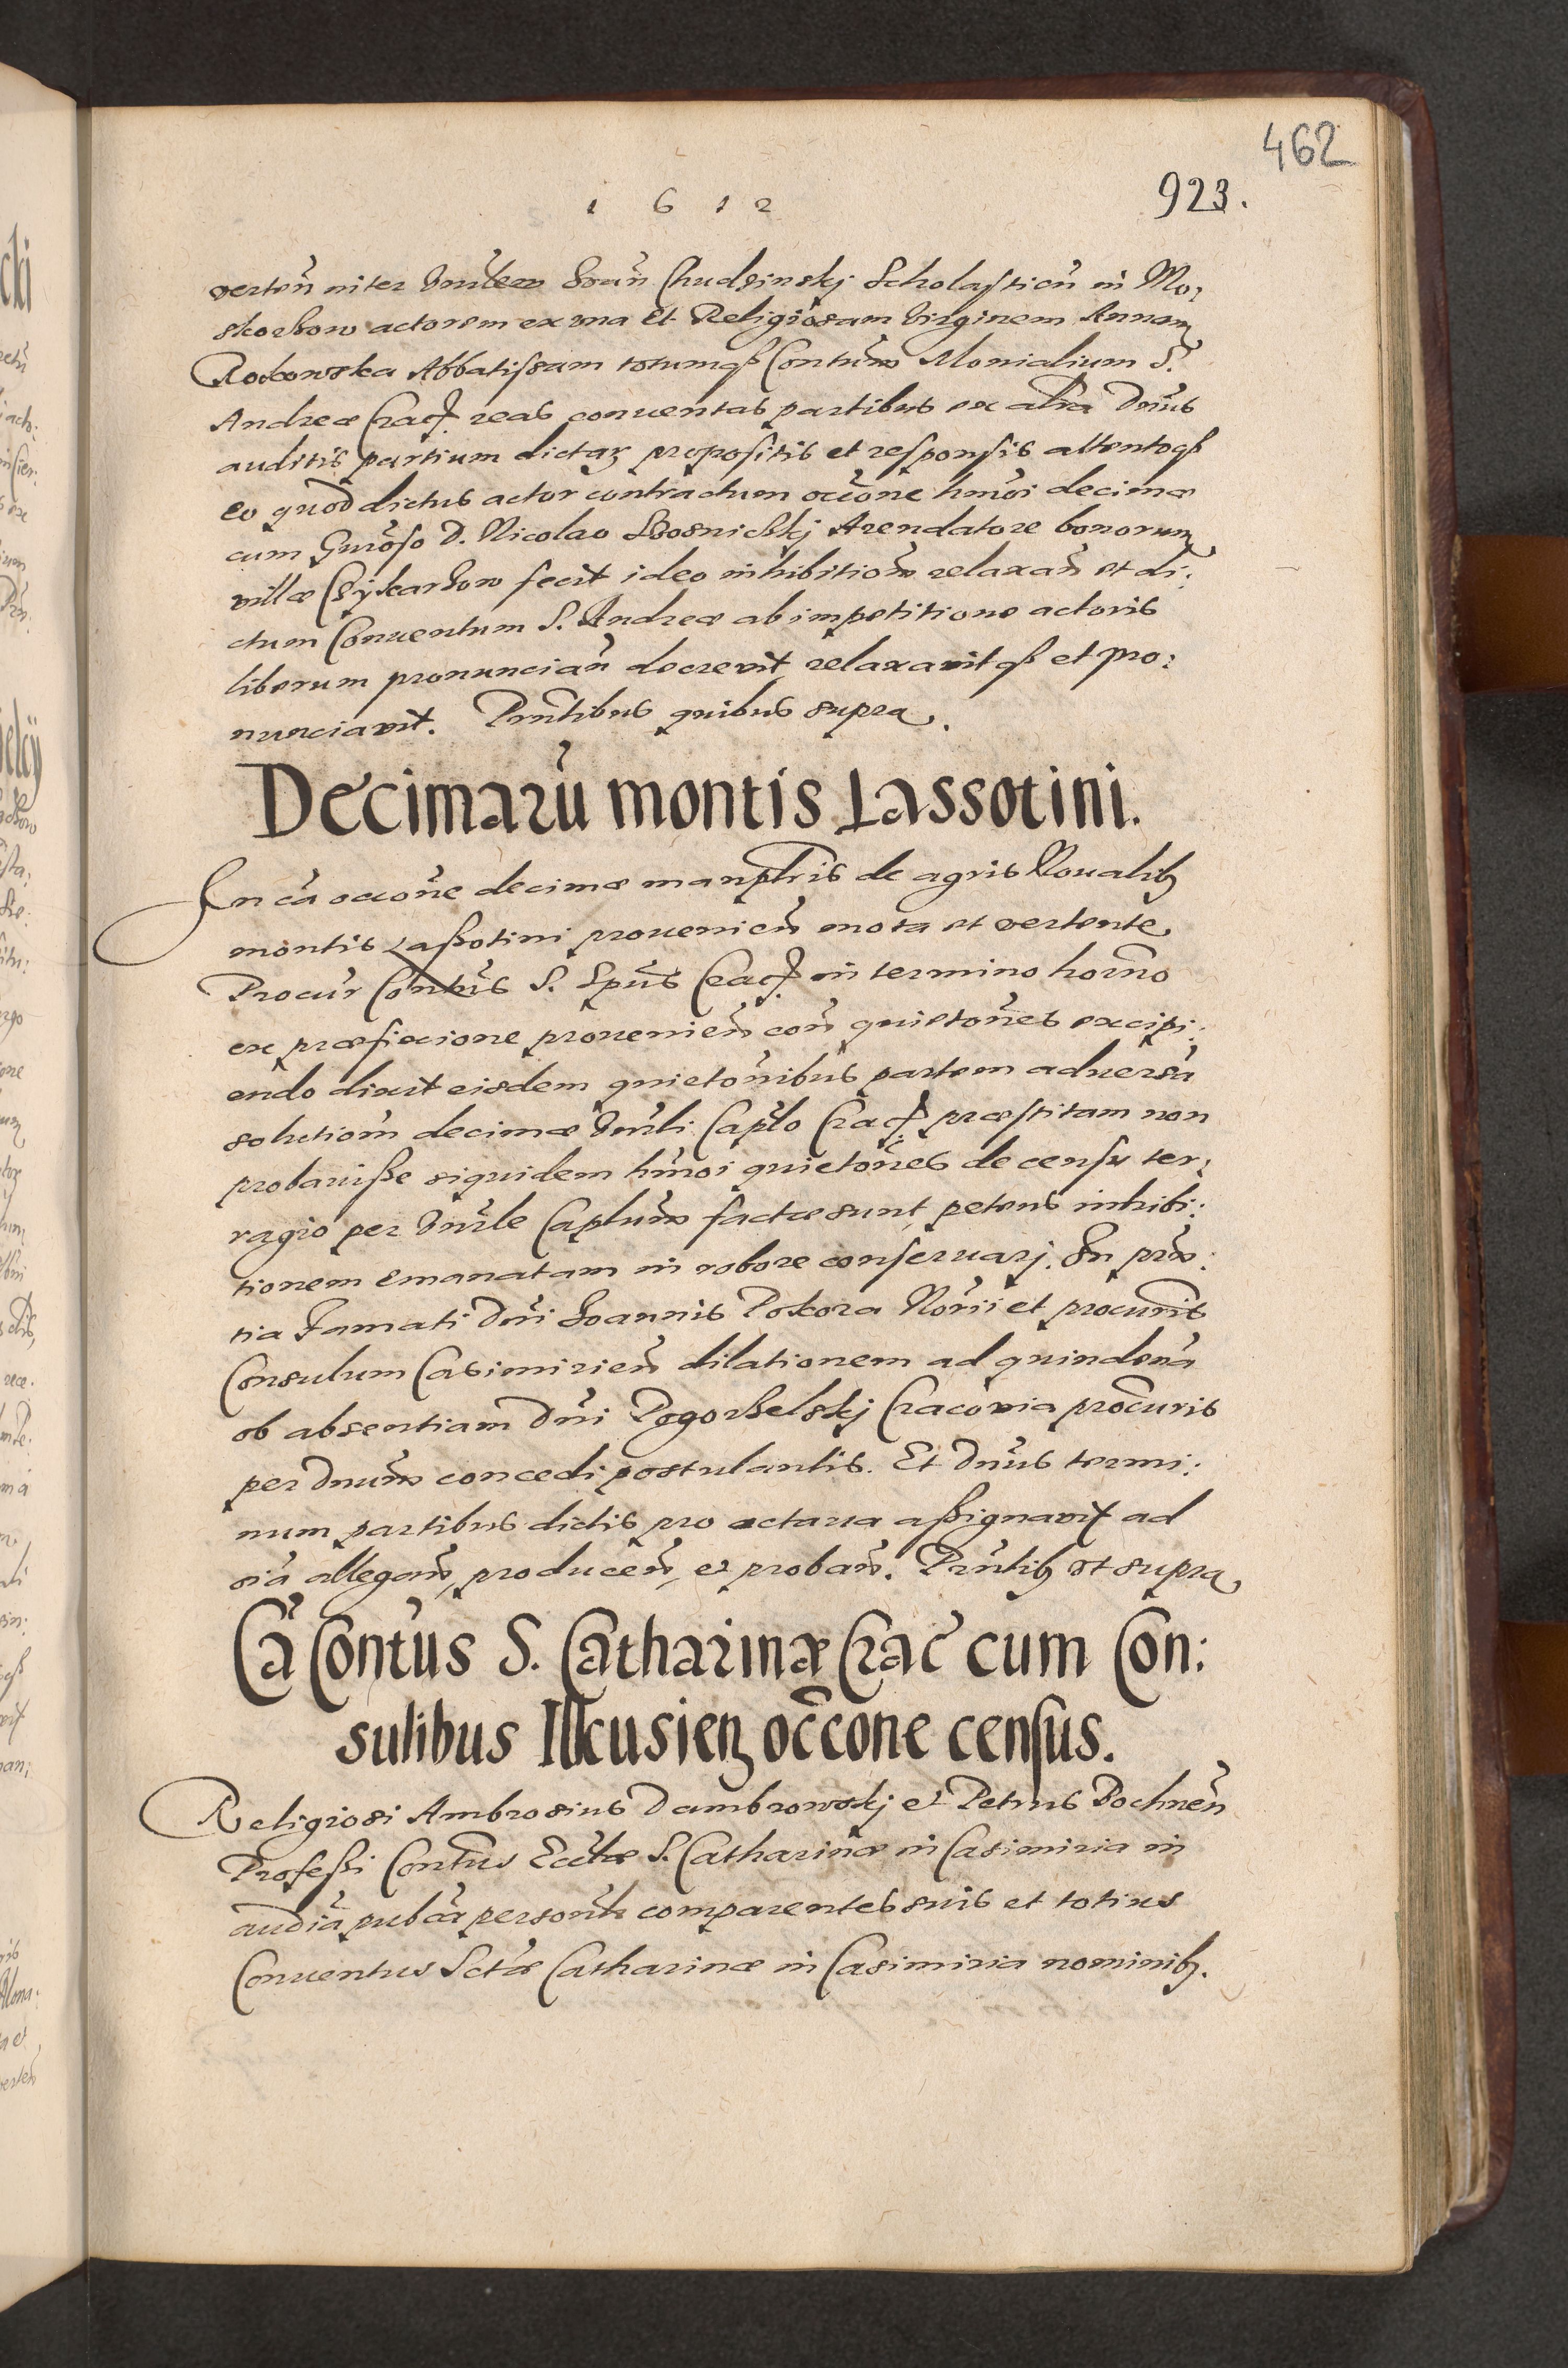 462
923.
1 6 1 2
verteñ inter Vnrlem Joañ Chudzinskj Scholasticũ in Mo,
skorzow actorem ex vna Et Religiosam Virginem Annam
Rokowska Abbatissam totumqȝ Contum̃ Monialium S.
Andreæ Crac̃ reas conuentas partibus ex alt̃ra Dnũs
auditis partium dictaꝝ propositis et responsis attentoqȝ
eo quod dictus actor contractum occõne hmõi decimæ
cum Gnroso D. Nicolao Arendatore bonorum
villæ fecit ideo inhibitioñem relaxañ et di:
ctum Conuentum S. Andreæ ab impetitione actoris
liberum pronunciañ decrevit relaxavitqȝ et pro:
nunciavit. Pntibus quibus supra.
Decimarũ montis Lassotini.
In cã occõne decimæ manplris de agris Noualibȝ
montis Lassotini proueniеñ mota et vertente
Procur Contus S. Spũs Crac̃ in termino horno
ex præfixione proueniеñ coñ quietõnes excipi:
endo dixit eisdem quietõnibus partem aduersã
solutiom̃ decimæ Vnrli Caplo Crac̃ præstitam non
probavisse siquidem hmõi quietõnes de censu ter,
ragio per Vnrle Caplum̃ factæ sunt petens inhibi:
tionem emanatam in robore conseruarj. In pñ:
tia Famati Dñi Joannis Pokora Norii et procuris
Consulum Casimirieñ dilationem ad quindenã
ob absentiam Dñi Pogorzelskj Cracovia procuris
per Dnum̃ concedi postulantis. Et Dnũs termi:
num partibus dictis pro octaua assignavit ad
oiã allegañ, produceñ, et probañ. Pntibȝ vt supra
Cã Contus S. Catharinæ Crac̃ cum Con:
sulibus Ilkusieñ occõne census.
Religiosi Ambrosius Dambrowskj et Petrus Bochneñ
Professi Contus Eccl̃iæ S. Catharinæ in Casimiria in
audiã pubca personlr comparentes suis et totius
Conuentus Sctæ Catharinæ in Casimiria nominibȝ.